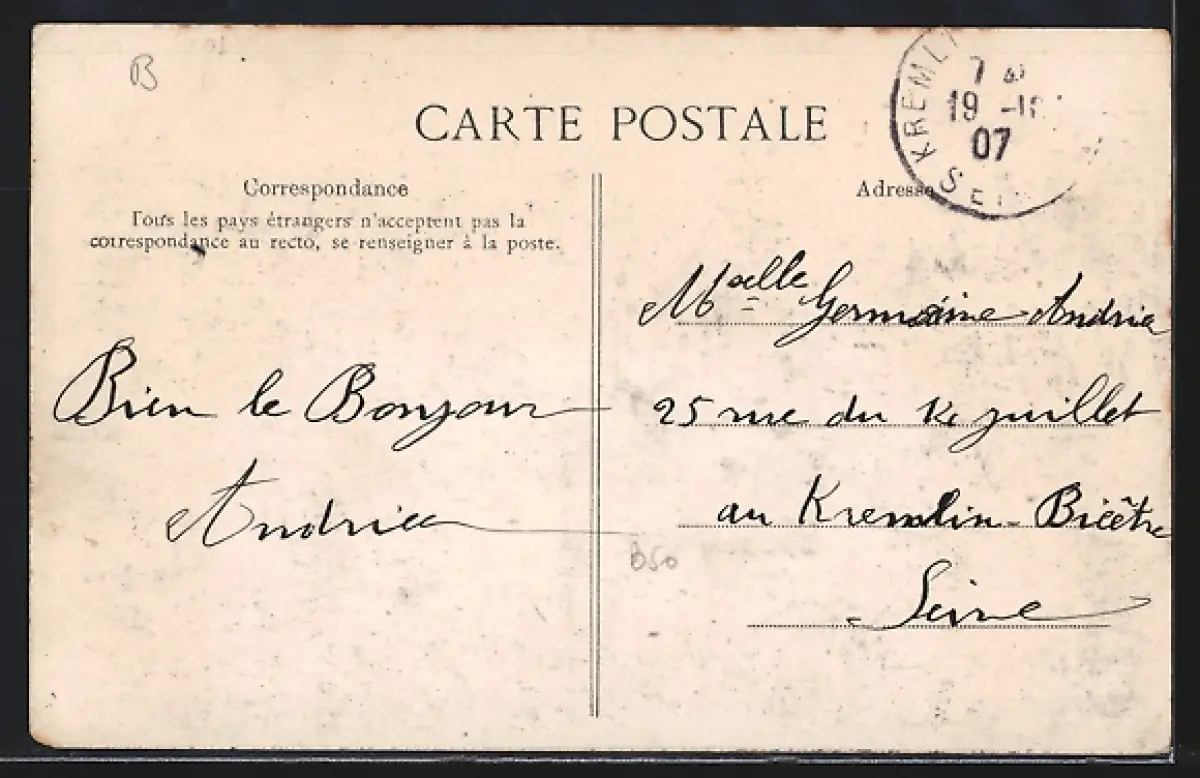 B
CARTE POSTALE
KREML
7
19 -1
07
SEI
Correspondance
Tous les pays étrangers n'acceptent pas la
correspondance au recto, se renseigner à la poste.
Bien le Bonjour
Andrieu
Adresse
Melle Germaine Andrieu
25 rue du 14 juillet
au Kremlin-Bicêtre
Seine
B50